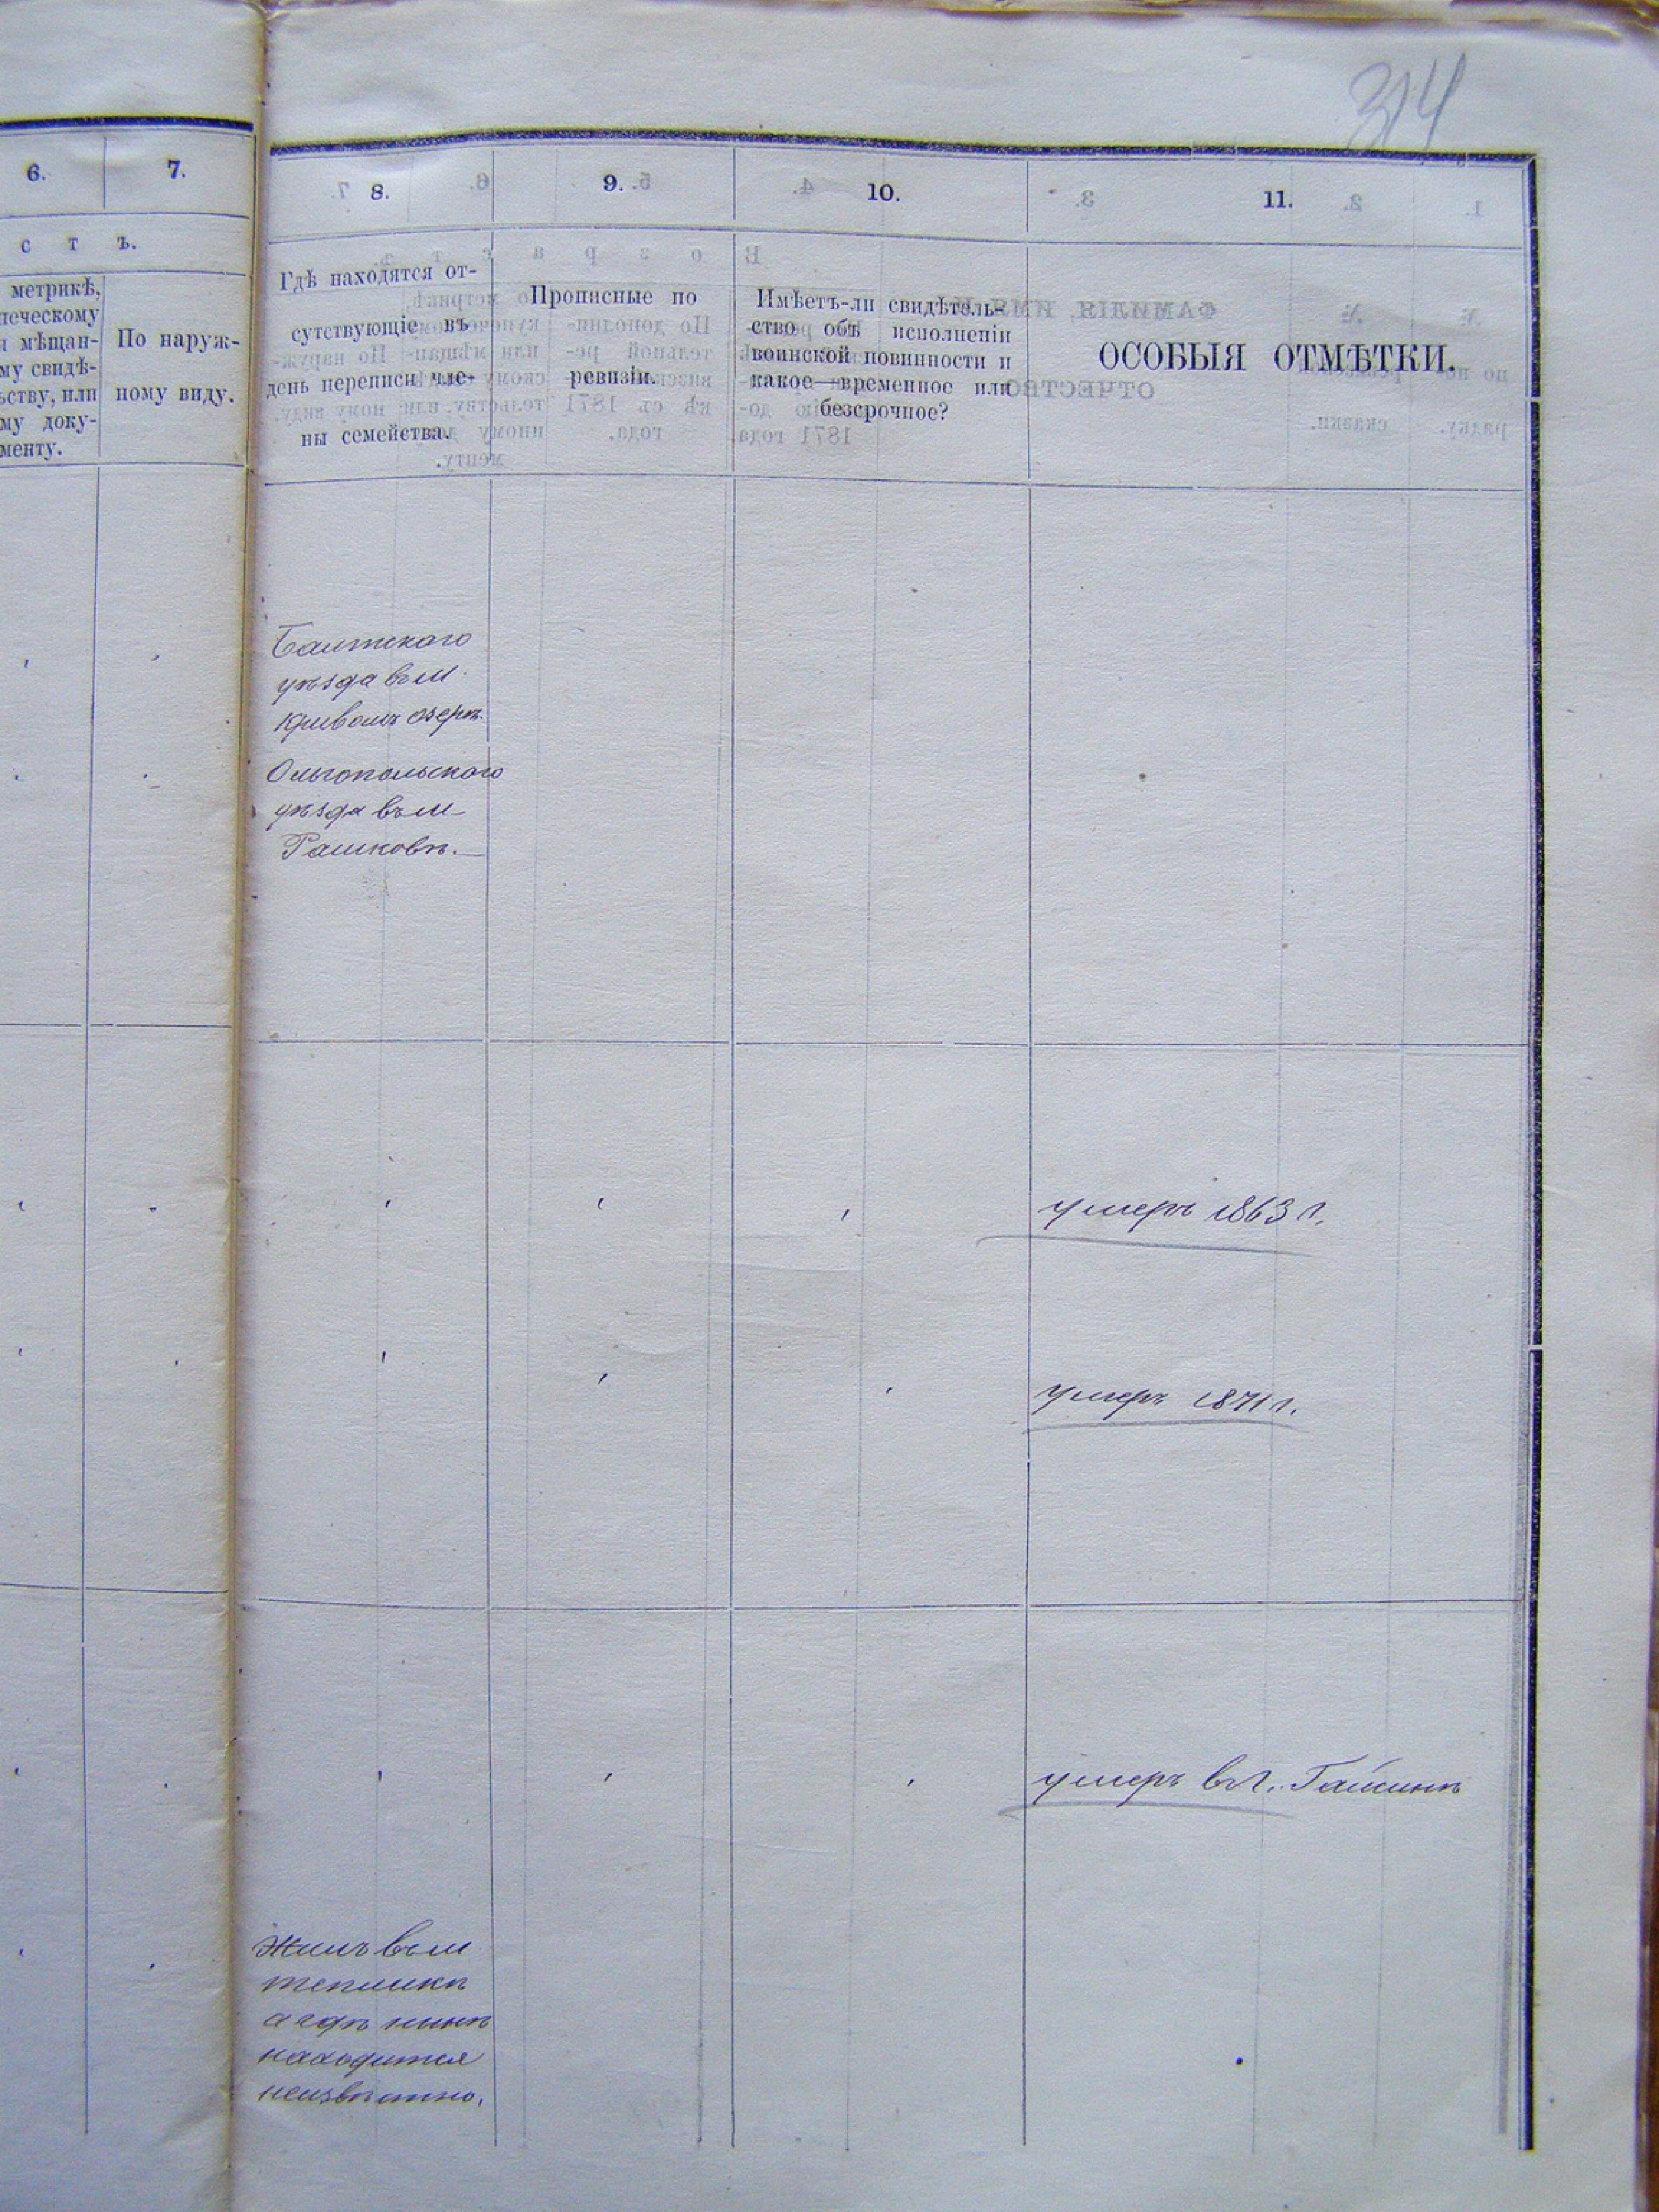 314
6.
7.
8.
9.
10.
11.
с т ъ.
метрикѣ,
печескому
и мѣщан-
му свидѣ-
ьству, или
му доку-
менту.
По наруж-
ному виду.
Гдѣ находятся от-
сутствующіе въ
день переписи чле-
ны семейства.
Прописные по
ревизіи.
Имѣетъ-ли свидѣтель-
ство объ исполненіи
воинской повинности и
какое—временное или
безсрочное?
ОСОБЫЯ ОТМѢТКИ.
Балтскаго
уѣзда въ м.
Кривомъ озерѣ.
Ольгопольскаго
уѣзда въ м
Рашковѣ.
умеръ 1863 г.
умеръ 1871 г.
умеръ въ г.
Жилъ въ м
тепликѣ
а гдѣ нынѣ
находится
неизвѣстно.